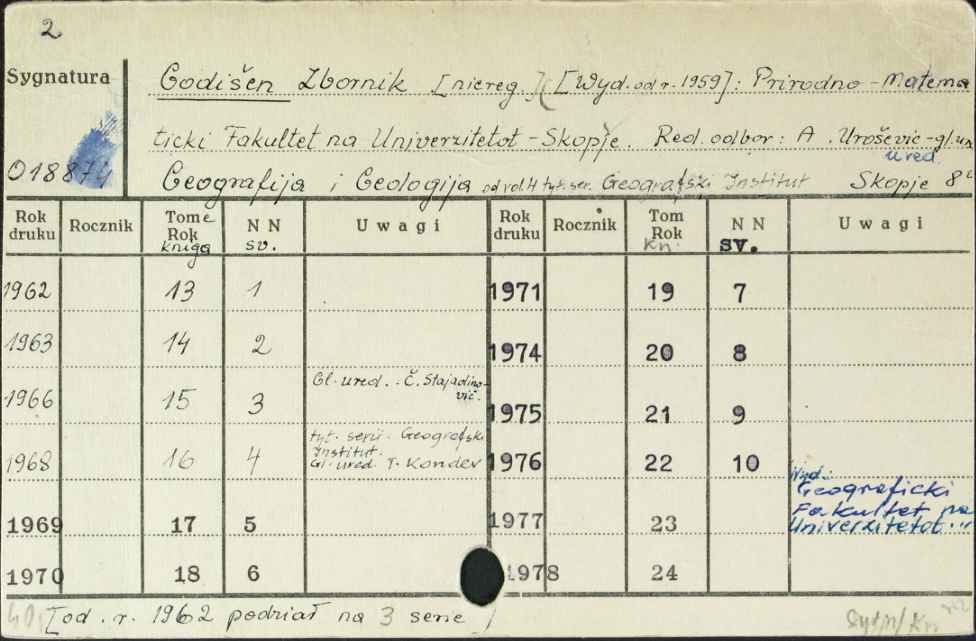 2
Sygnatura
Godišen Zbornik [niereg.] [Wyd. od r. 1959]: Prirodno-Matema
ticki Fakultet na Univerzitetot - Skopje. Red. odbor: A. Uroševic-gl.
ured.
018874
Geografija i Geologija od vol. 4 tyt. ser. Geografski Institut Skopje 8°
Rok druku Rocznik Tome Rok kniga N N sv. Uwagi Rok druku Rocznik Tom Rok kn. N N sv. Uwagi
1962 13 1 1971 19 7
1963 14 2 1974 20 8
1966 15 3 Gl. ured. Č. Stajadino 1975 21 9
vič.
1968 16 4 tyt. serii. Geografski 1976 22 10
Institut.
Gl. ured. T. Kondev
Wyd.:
Geograficki
Fakultet na
Univerzitetot.
1969 17 5 1977 23
1970 18 6 1978 24
[od. r. 1962 podział na 3 serie